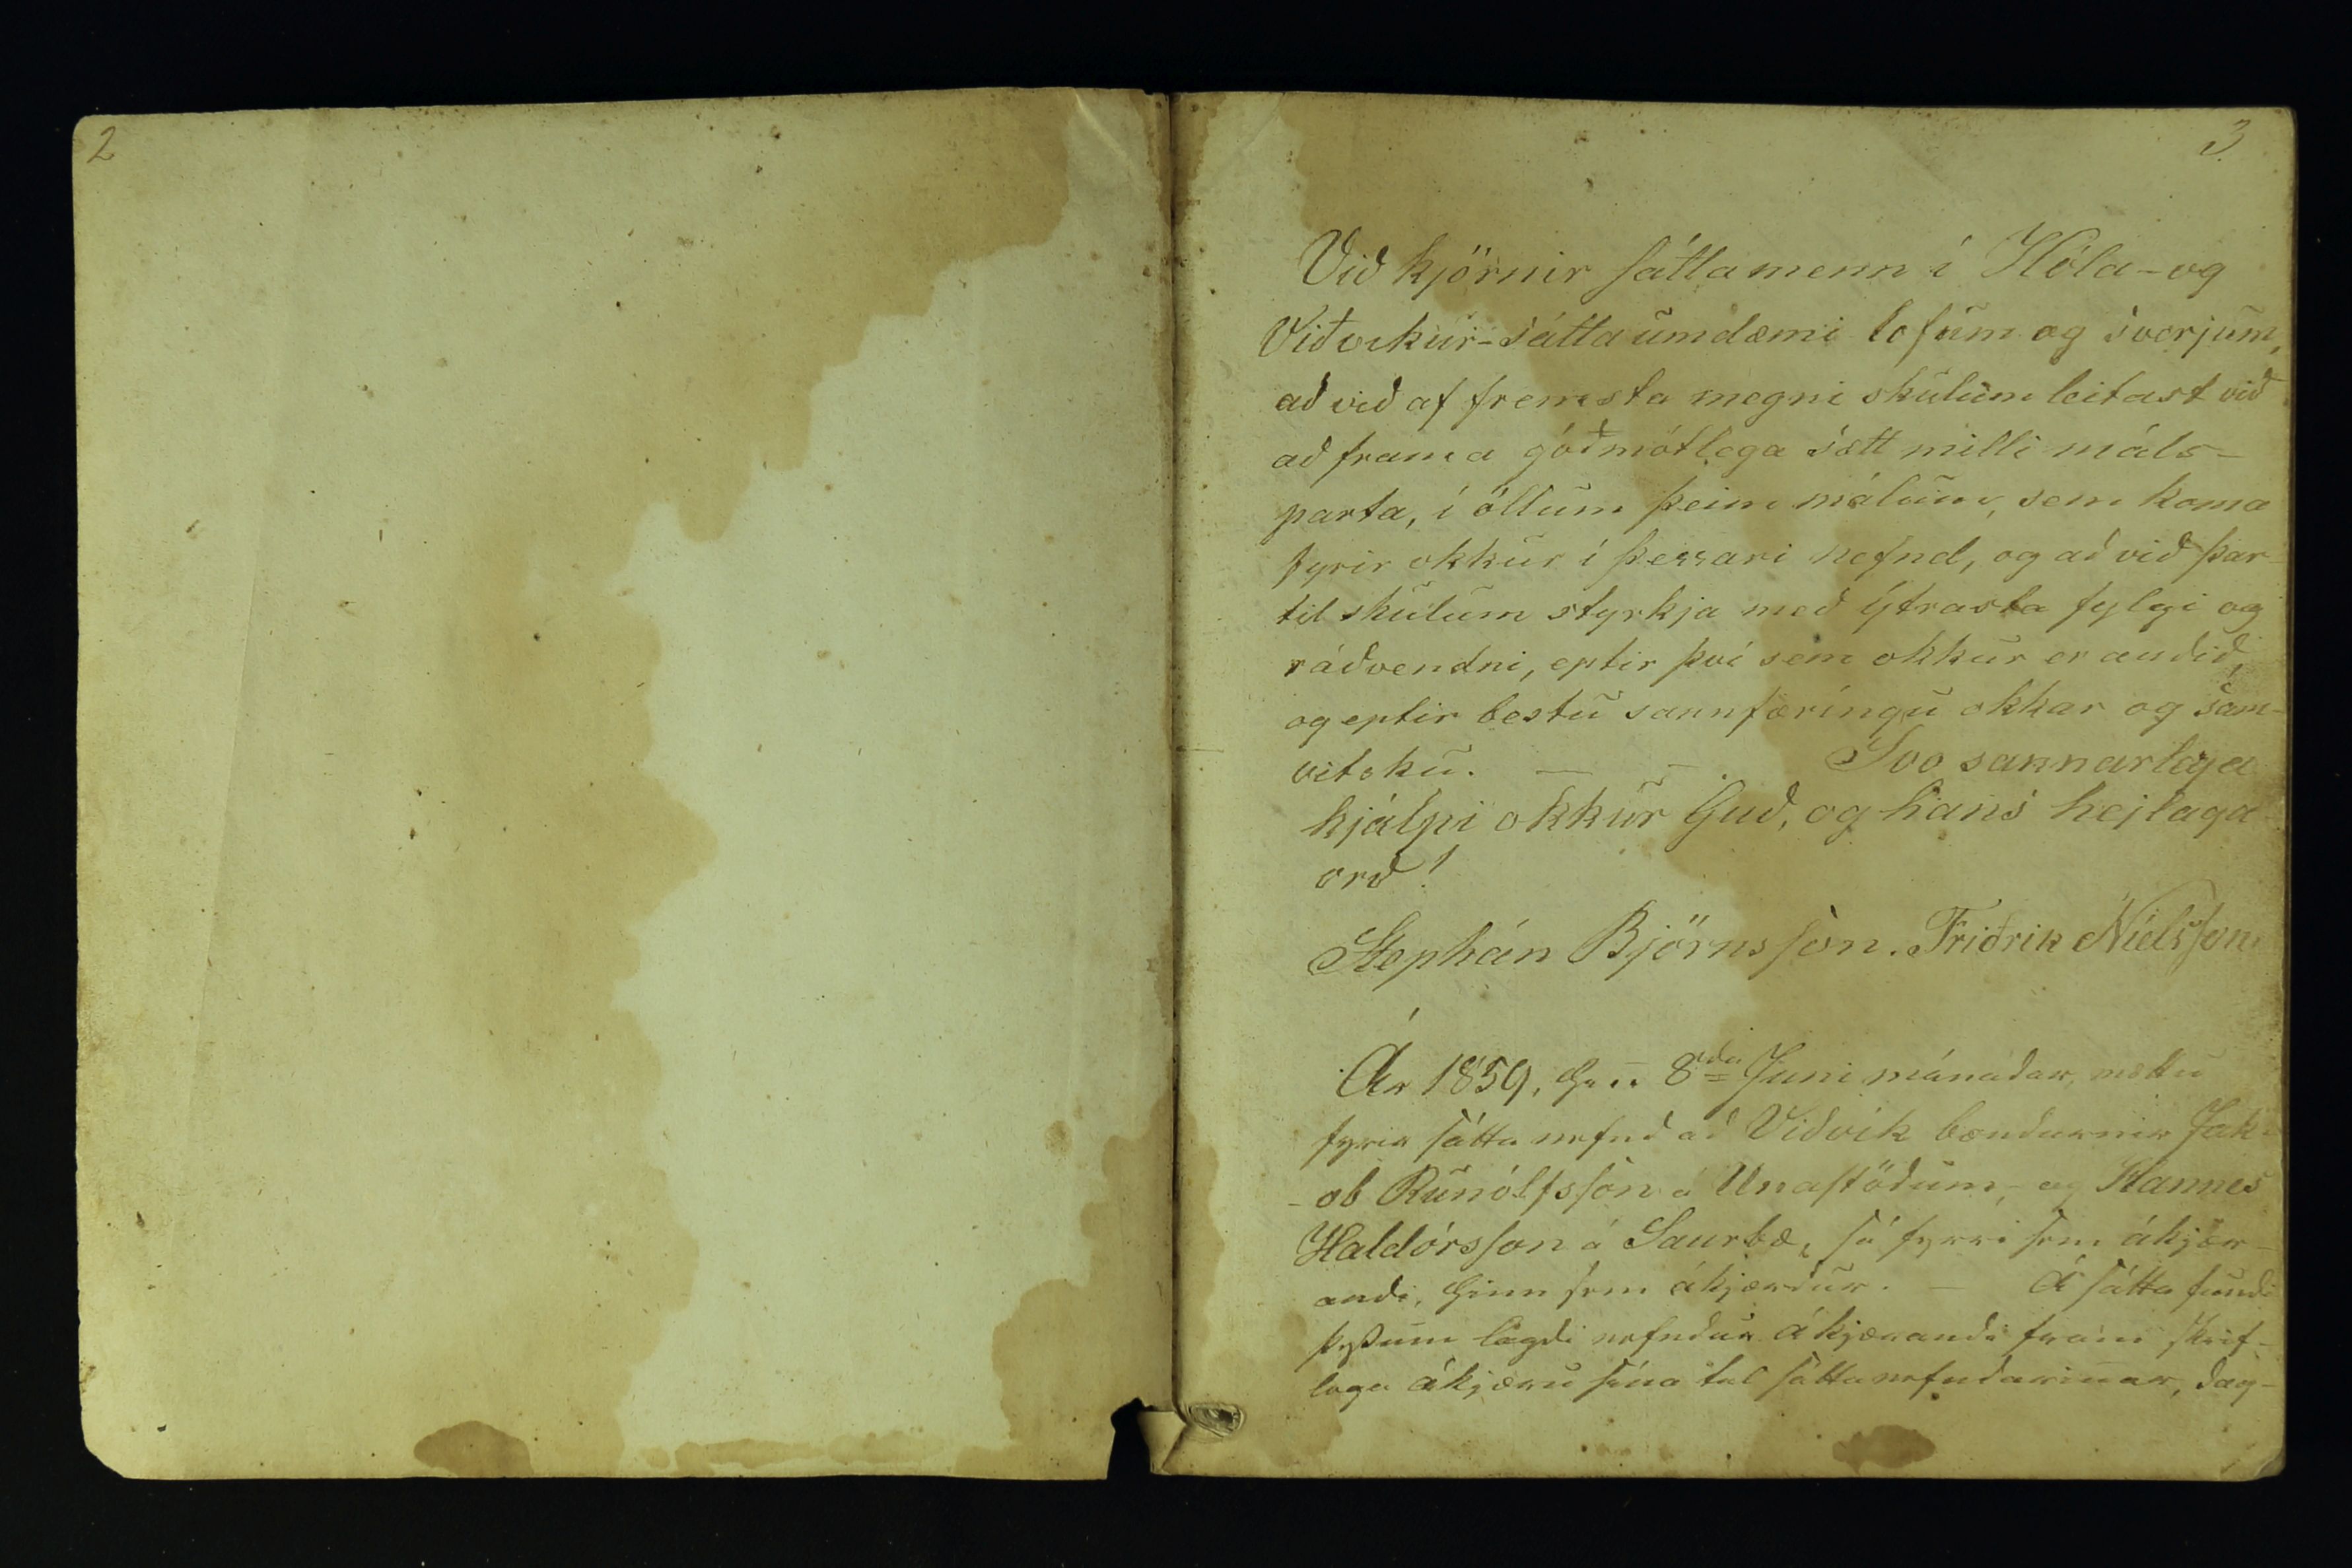 2
3
Við kjörnir sáttamenn í Hóla- og
Viðvikur-sáttaumdæmi lofum og sverjum,
að við af fremsta megni skulum leitast við
að frama góðmótlega sætt milli máls-
parta, í öllum þeim málum, sem koma
fyrir okkur í þessari nefnd, og að við þar
til skulum styrkja með ýtrasta fylgi og
ráðvendni, eptir því sem okkur er auðið,
og eptir bestu sannfæríngu okkar og sam-
vitsku. — — Svo sannarlega
hjálpi okkur Guð, og hans hejlaga
orð!
Stephán Björnsson. Friðrik Níelsson
Ár 1859, 8da Juni mánaðar, mættu
fyrir sátta nefnd að Viðvík bændurnir Jak-
-ob Runólfsson á Unastöðum, og Hannes
Haldórsson á Saurbæ, sá fyrri sem ákjær-
andi, hinn sem ákjærður. — Á sátta fundi
þessum lagði nefndur ákjærandi fram skrif-
lega ákjæru sína til sáttanefndarinnar, dag-